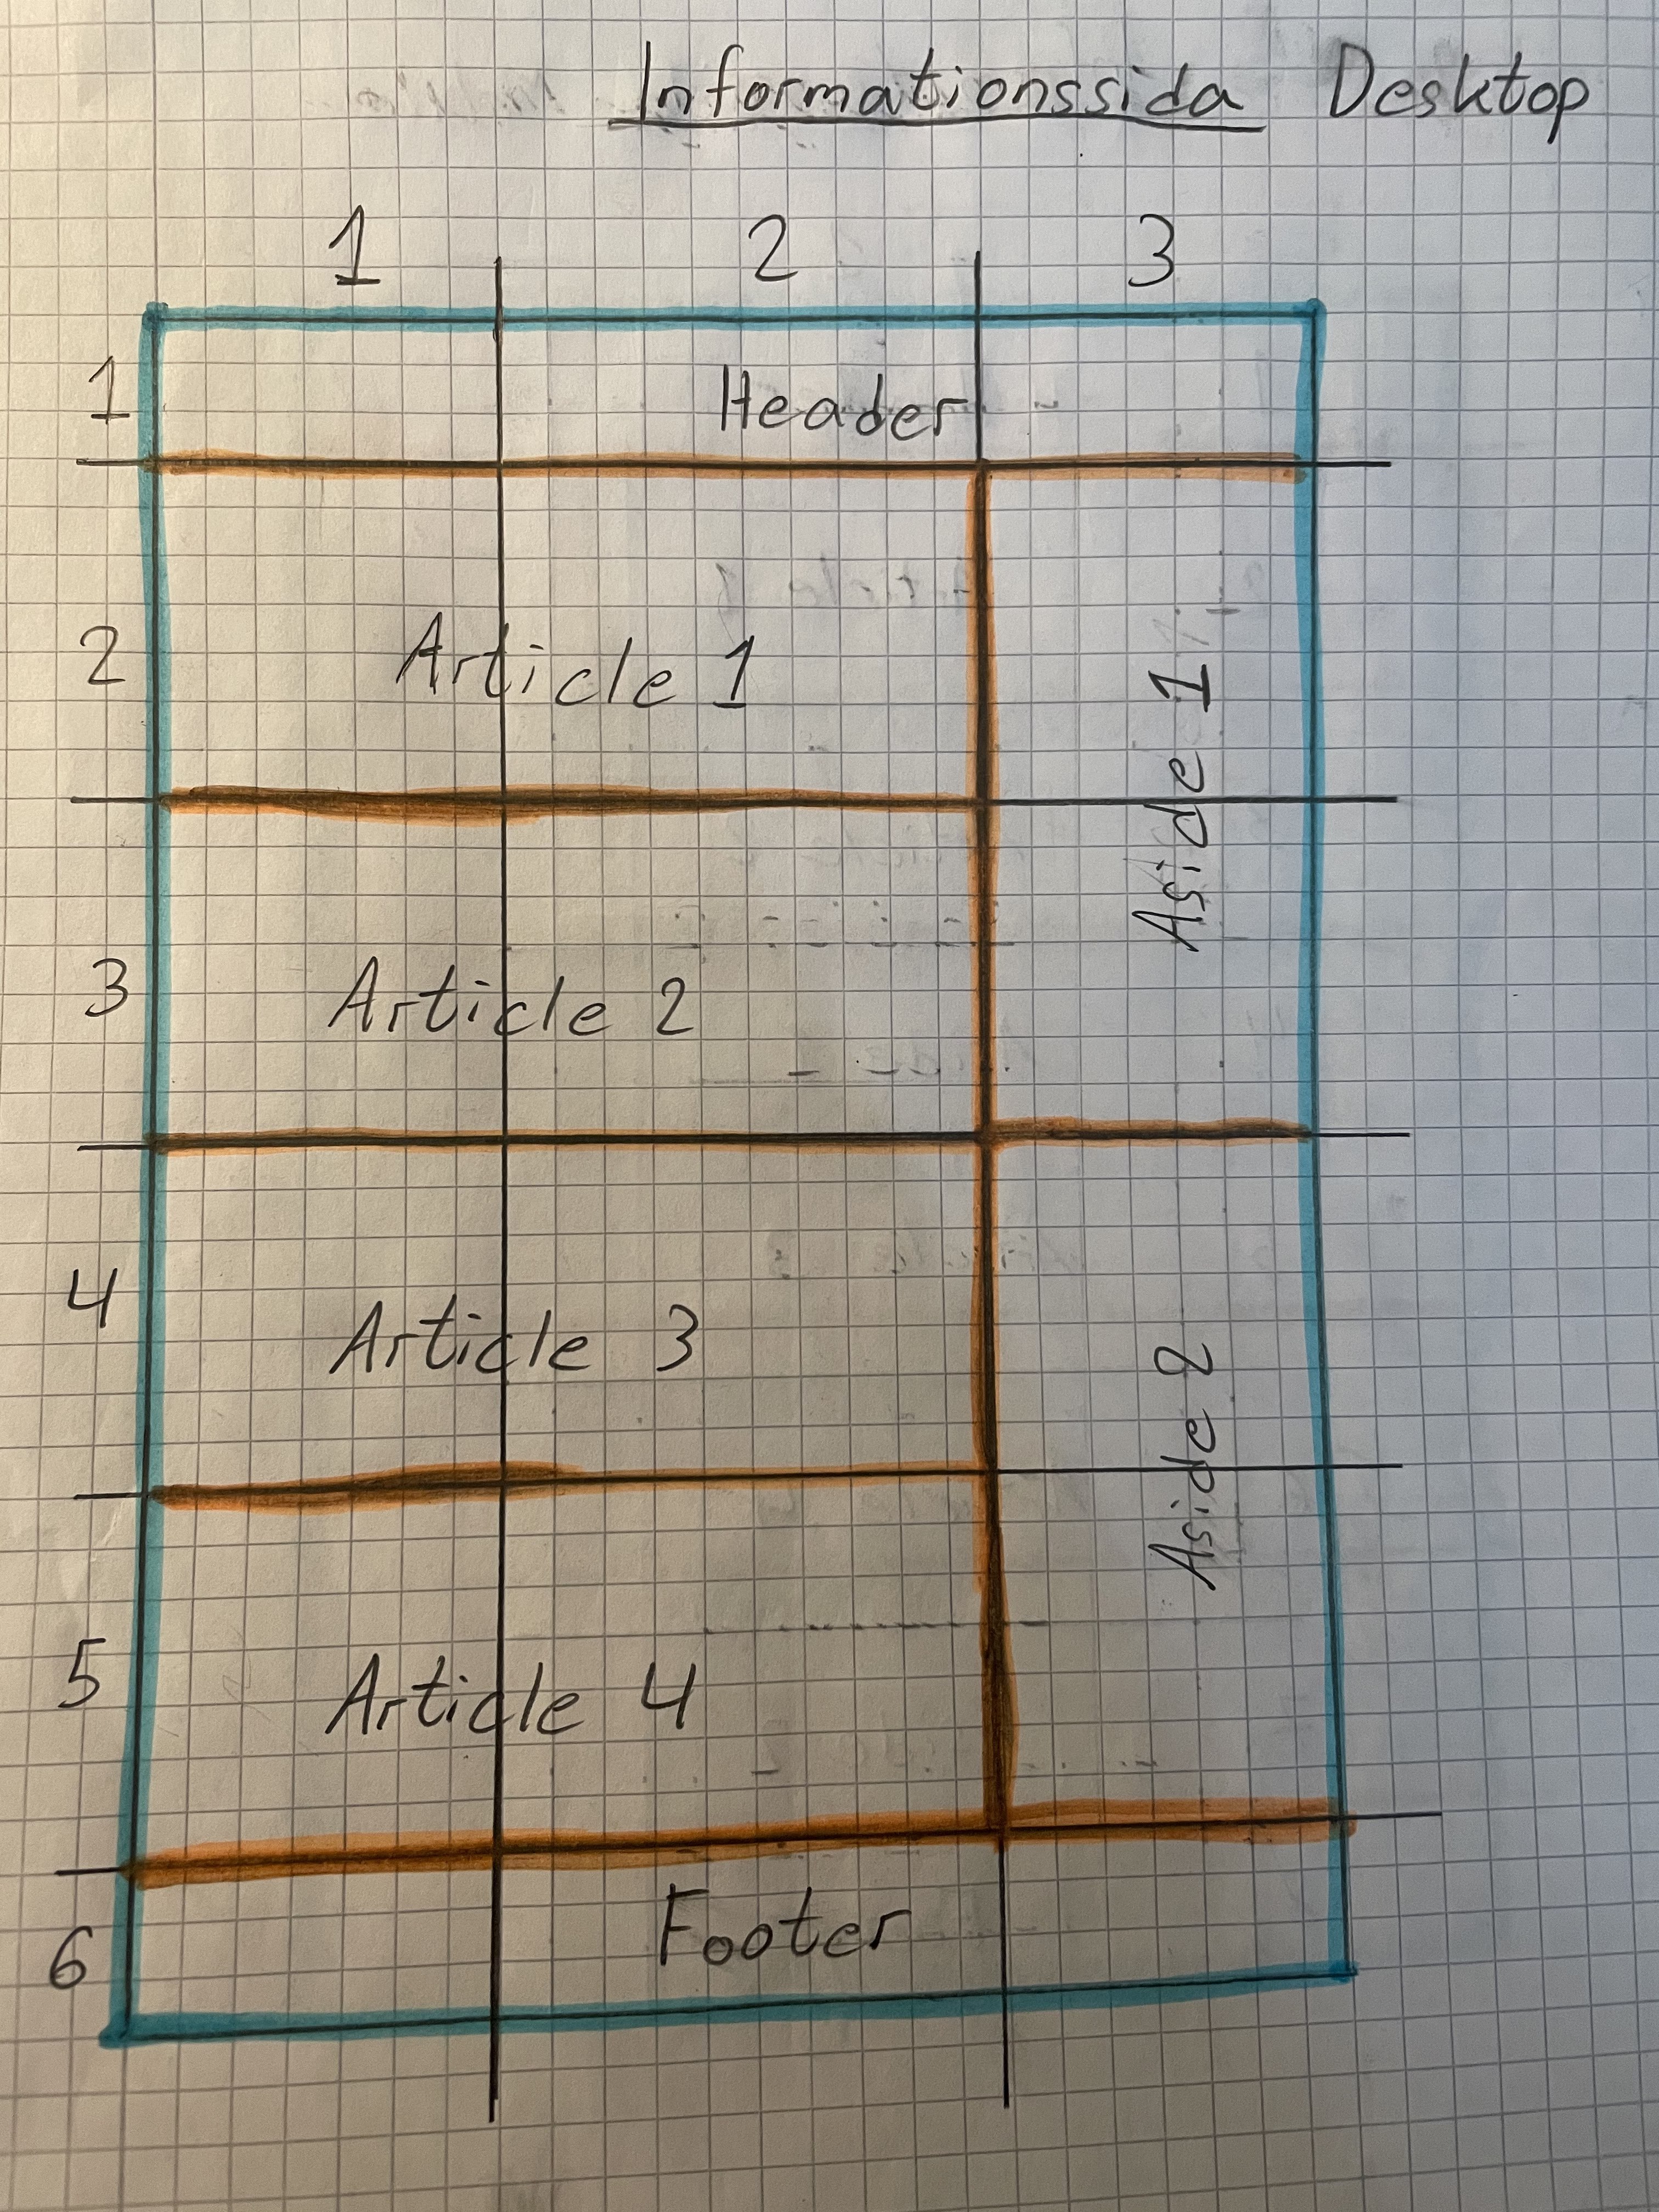 Informationssida Desktop
1 2 3
1 Header
2 Article 1
Aside 1
3 Article 2
4 Article 3
Aside 2
5 Article 4
6 Footer